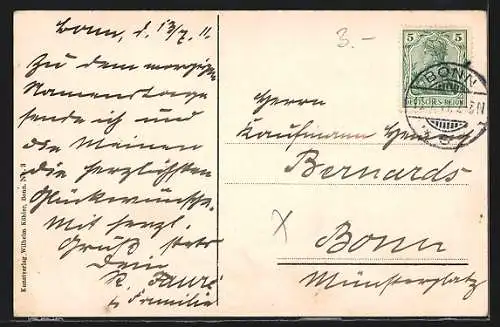 Bonn, d. 13/7. 11.
Zu dem morgigen
Namenstage
sende ich und
die Meinen
die herzlichsten
Glückwünsche.
Mit herzl.
Gruß stets
Dein
&amp; Familie
3.-
5 5
DEUTSCHES REICH
BONN
Herrn
Kaufmann
Bernards
Bonn
Münsterplatz
Kunstverlag Wilhelm Köhler, Bonn.